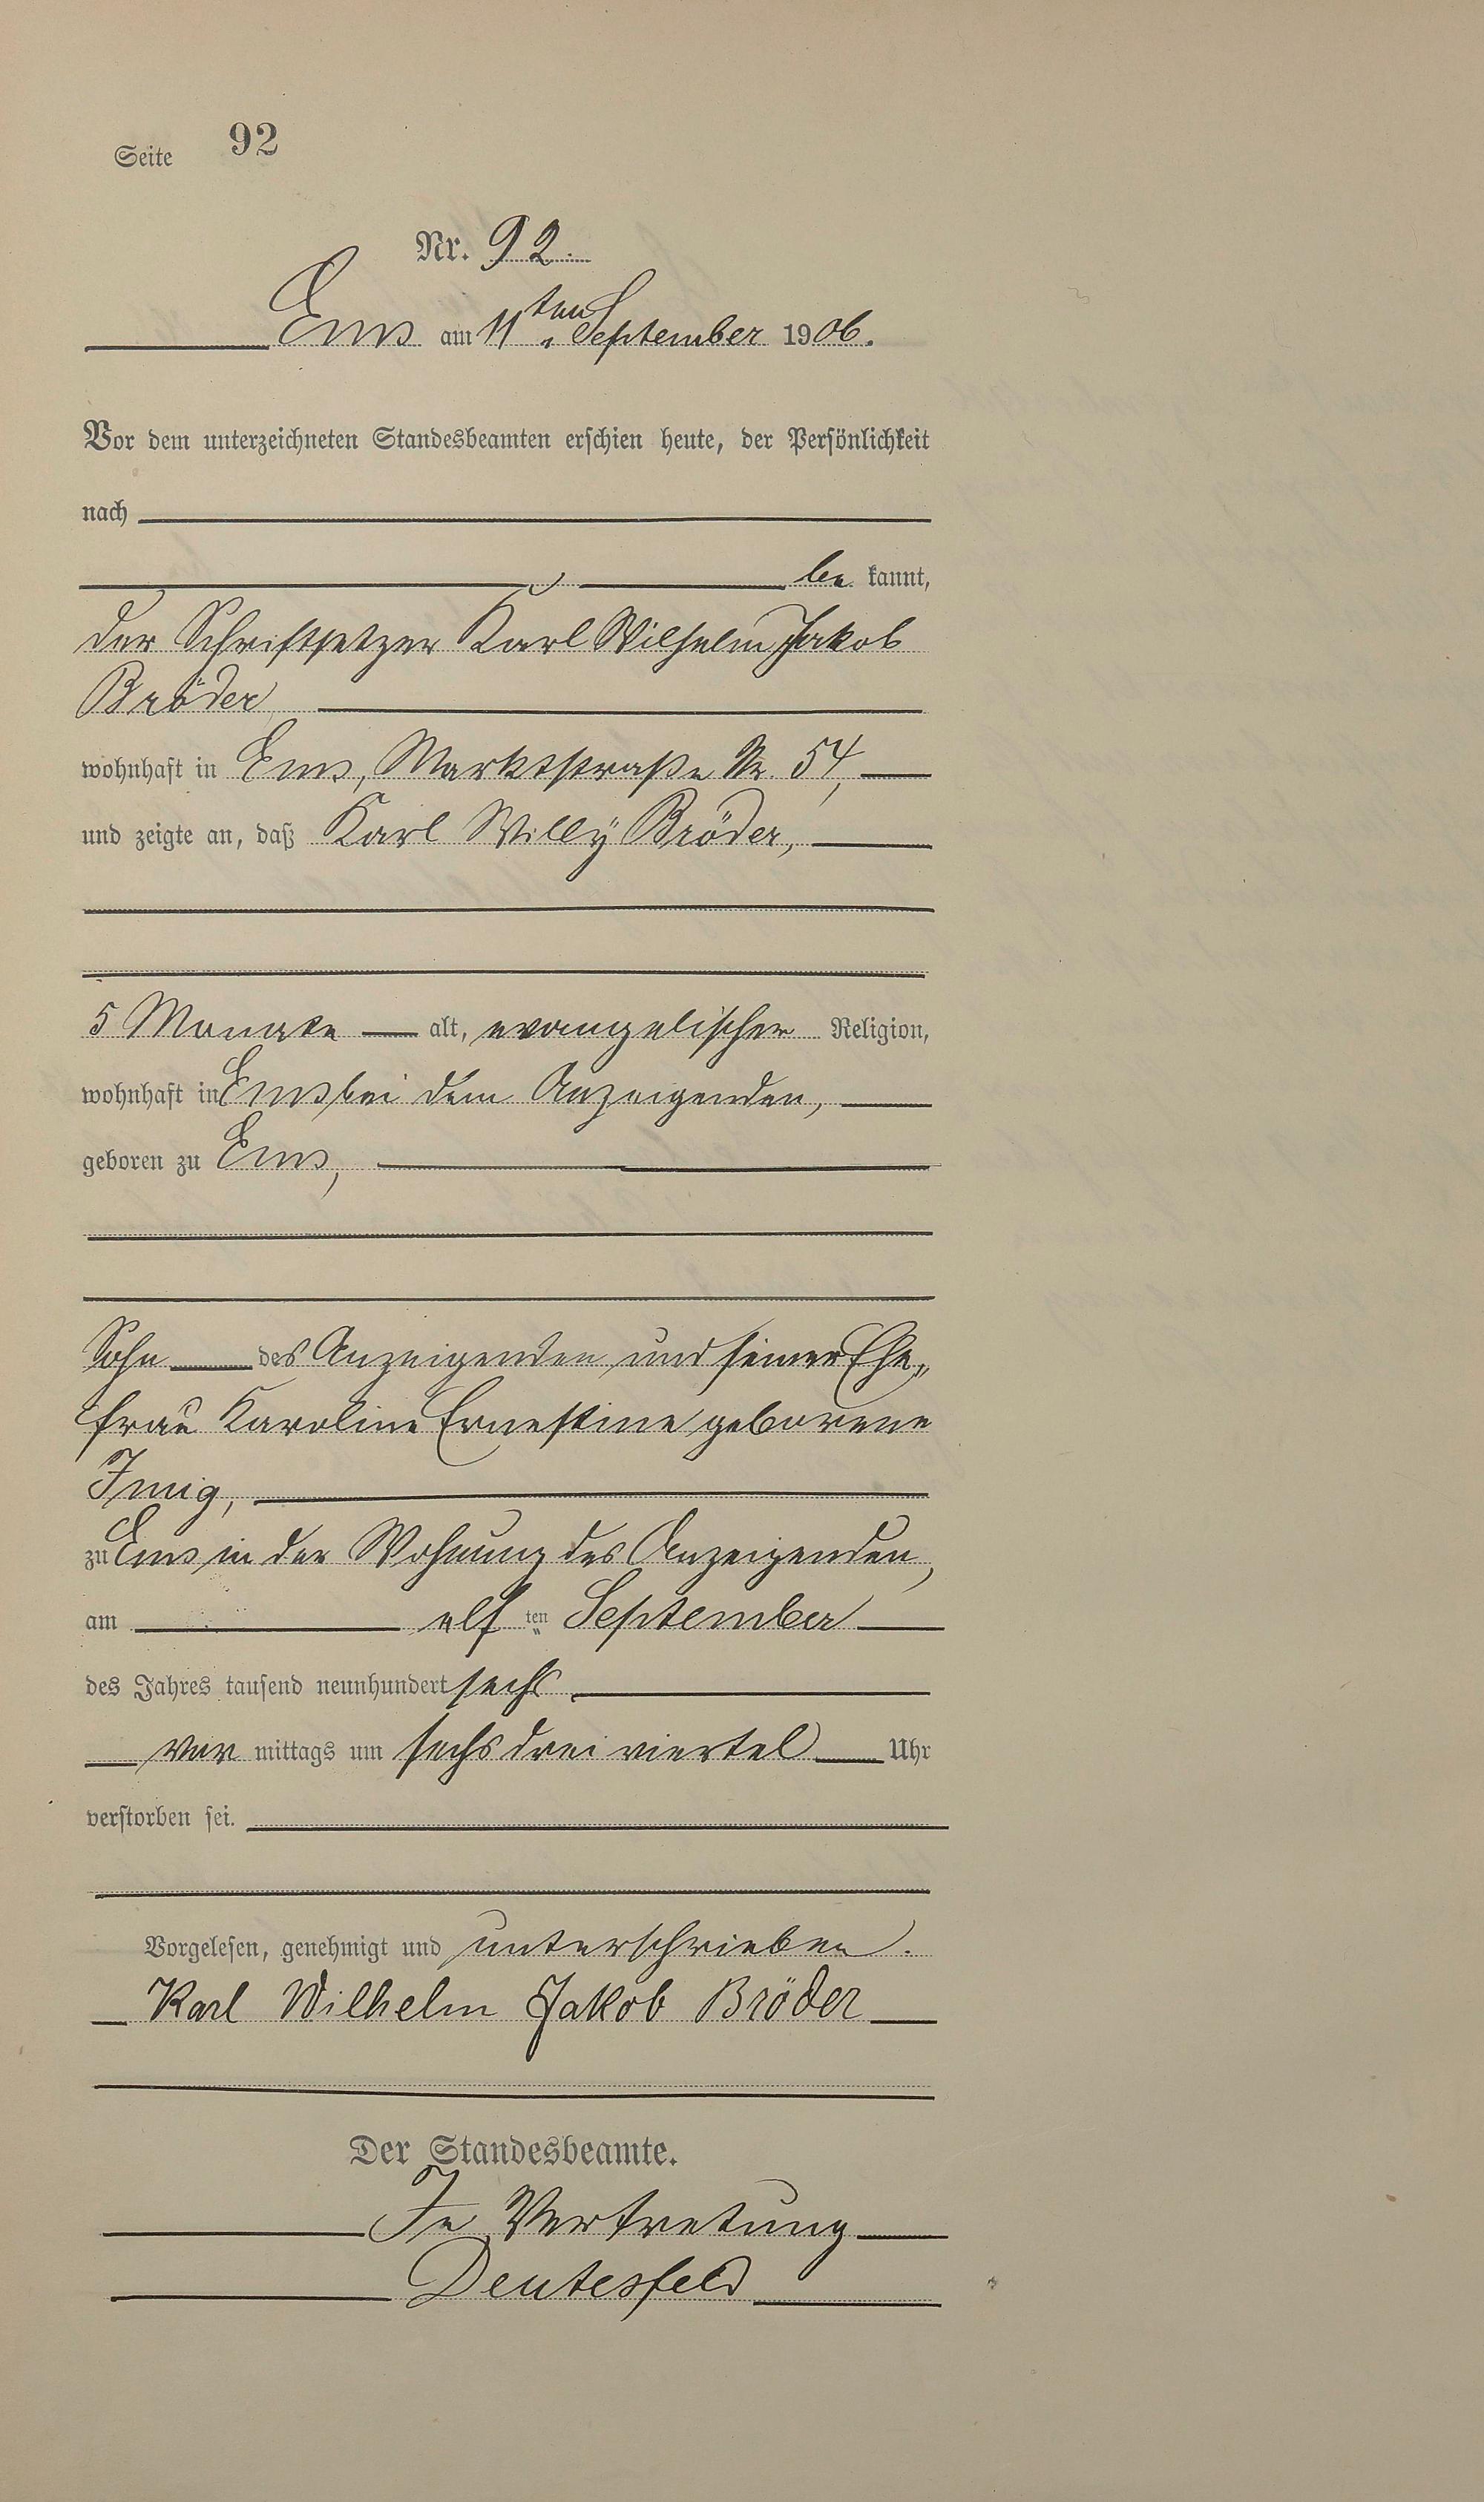 Seite 92
Nr. 92.
Ems am 11ten September 1906.
Vor dem unterzeichneten Standesbeamten erschien heute, der Persönlichkeit
nach
be kannt,
der Schriftsetzer Karl Wilhelm Jakob
Bröder
wohnhaft in Ems, Marktstraße Nr. 54,
und zeigte an, daß Karl Willÿ Bröder,
5 Monate alt, evangelischer Religion,
wohnhaft in Ems bei dem Anzeigenden,
geboren zu Ems,
Sohn des Anzeigenden und seiner Ehe„
frau Karoline Ernestine geborene
zu Ems in der Wohnung des Anzeigenden,
am elf ten September
des Jahres tausend neunhundert sechs
vor mittags um sechs drei viertel Uhr
verstorben sei.
Vorgelesen, genehmigt und unterschrieben.
Karl Wilhelm Jakob Bröder
Der Standesbeamte.
In Vertretung
Deutesfeld